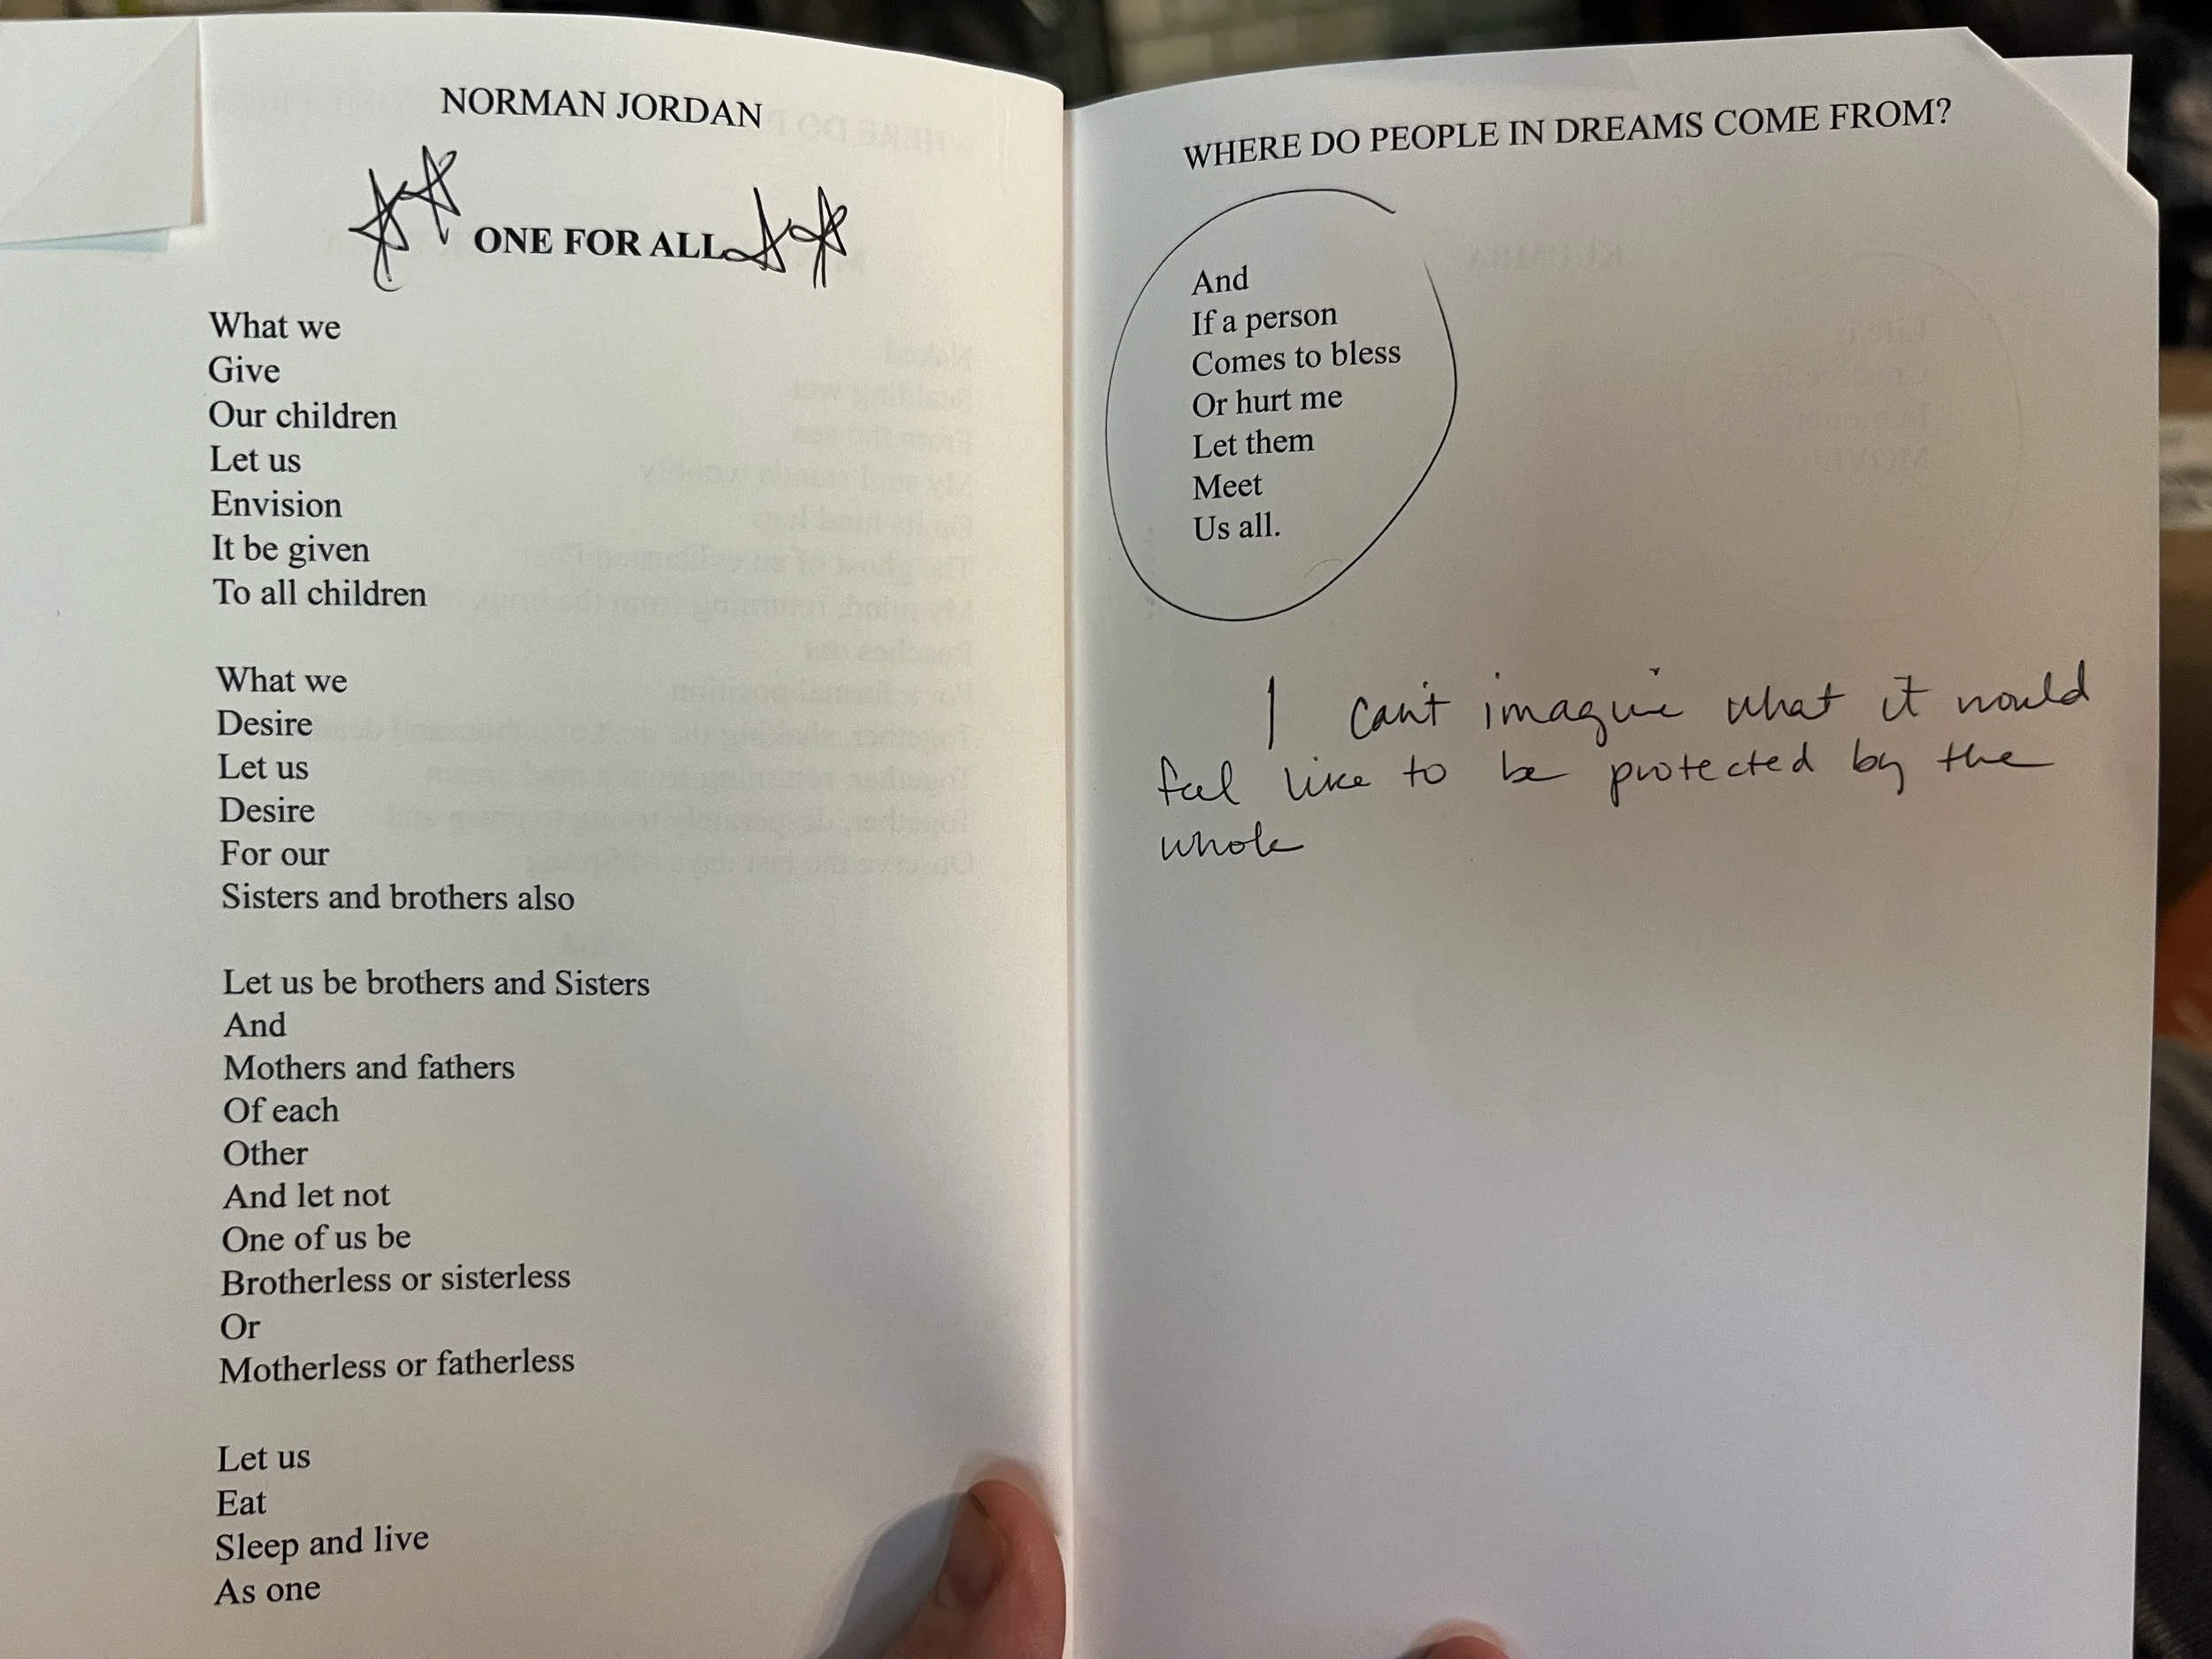 NORMAN JORDAN
ONE FOR ALL
What we
Give
Our children
Let us
Envision
It be given
To all children
What we
Desire
Let us
Desire
For our
Sisters and brothers also
Let us be brothers and Sisters
And
Mothers and fathers
Of each
Other
And let not
One of us be
Brotherless or sisterless
Or
Motherless or fatherless
Let us
Eat
Sleep and live
As one
WHERE DO PEOPLE IN DREAMS COME FROM?
And
If a person
Comes to bless
Or hurt me
Let them
Meet
Us all.
I can't imagine what it would
feel like to be protected by the
whole